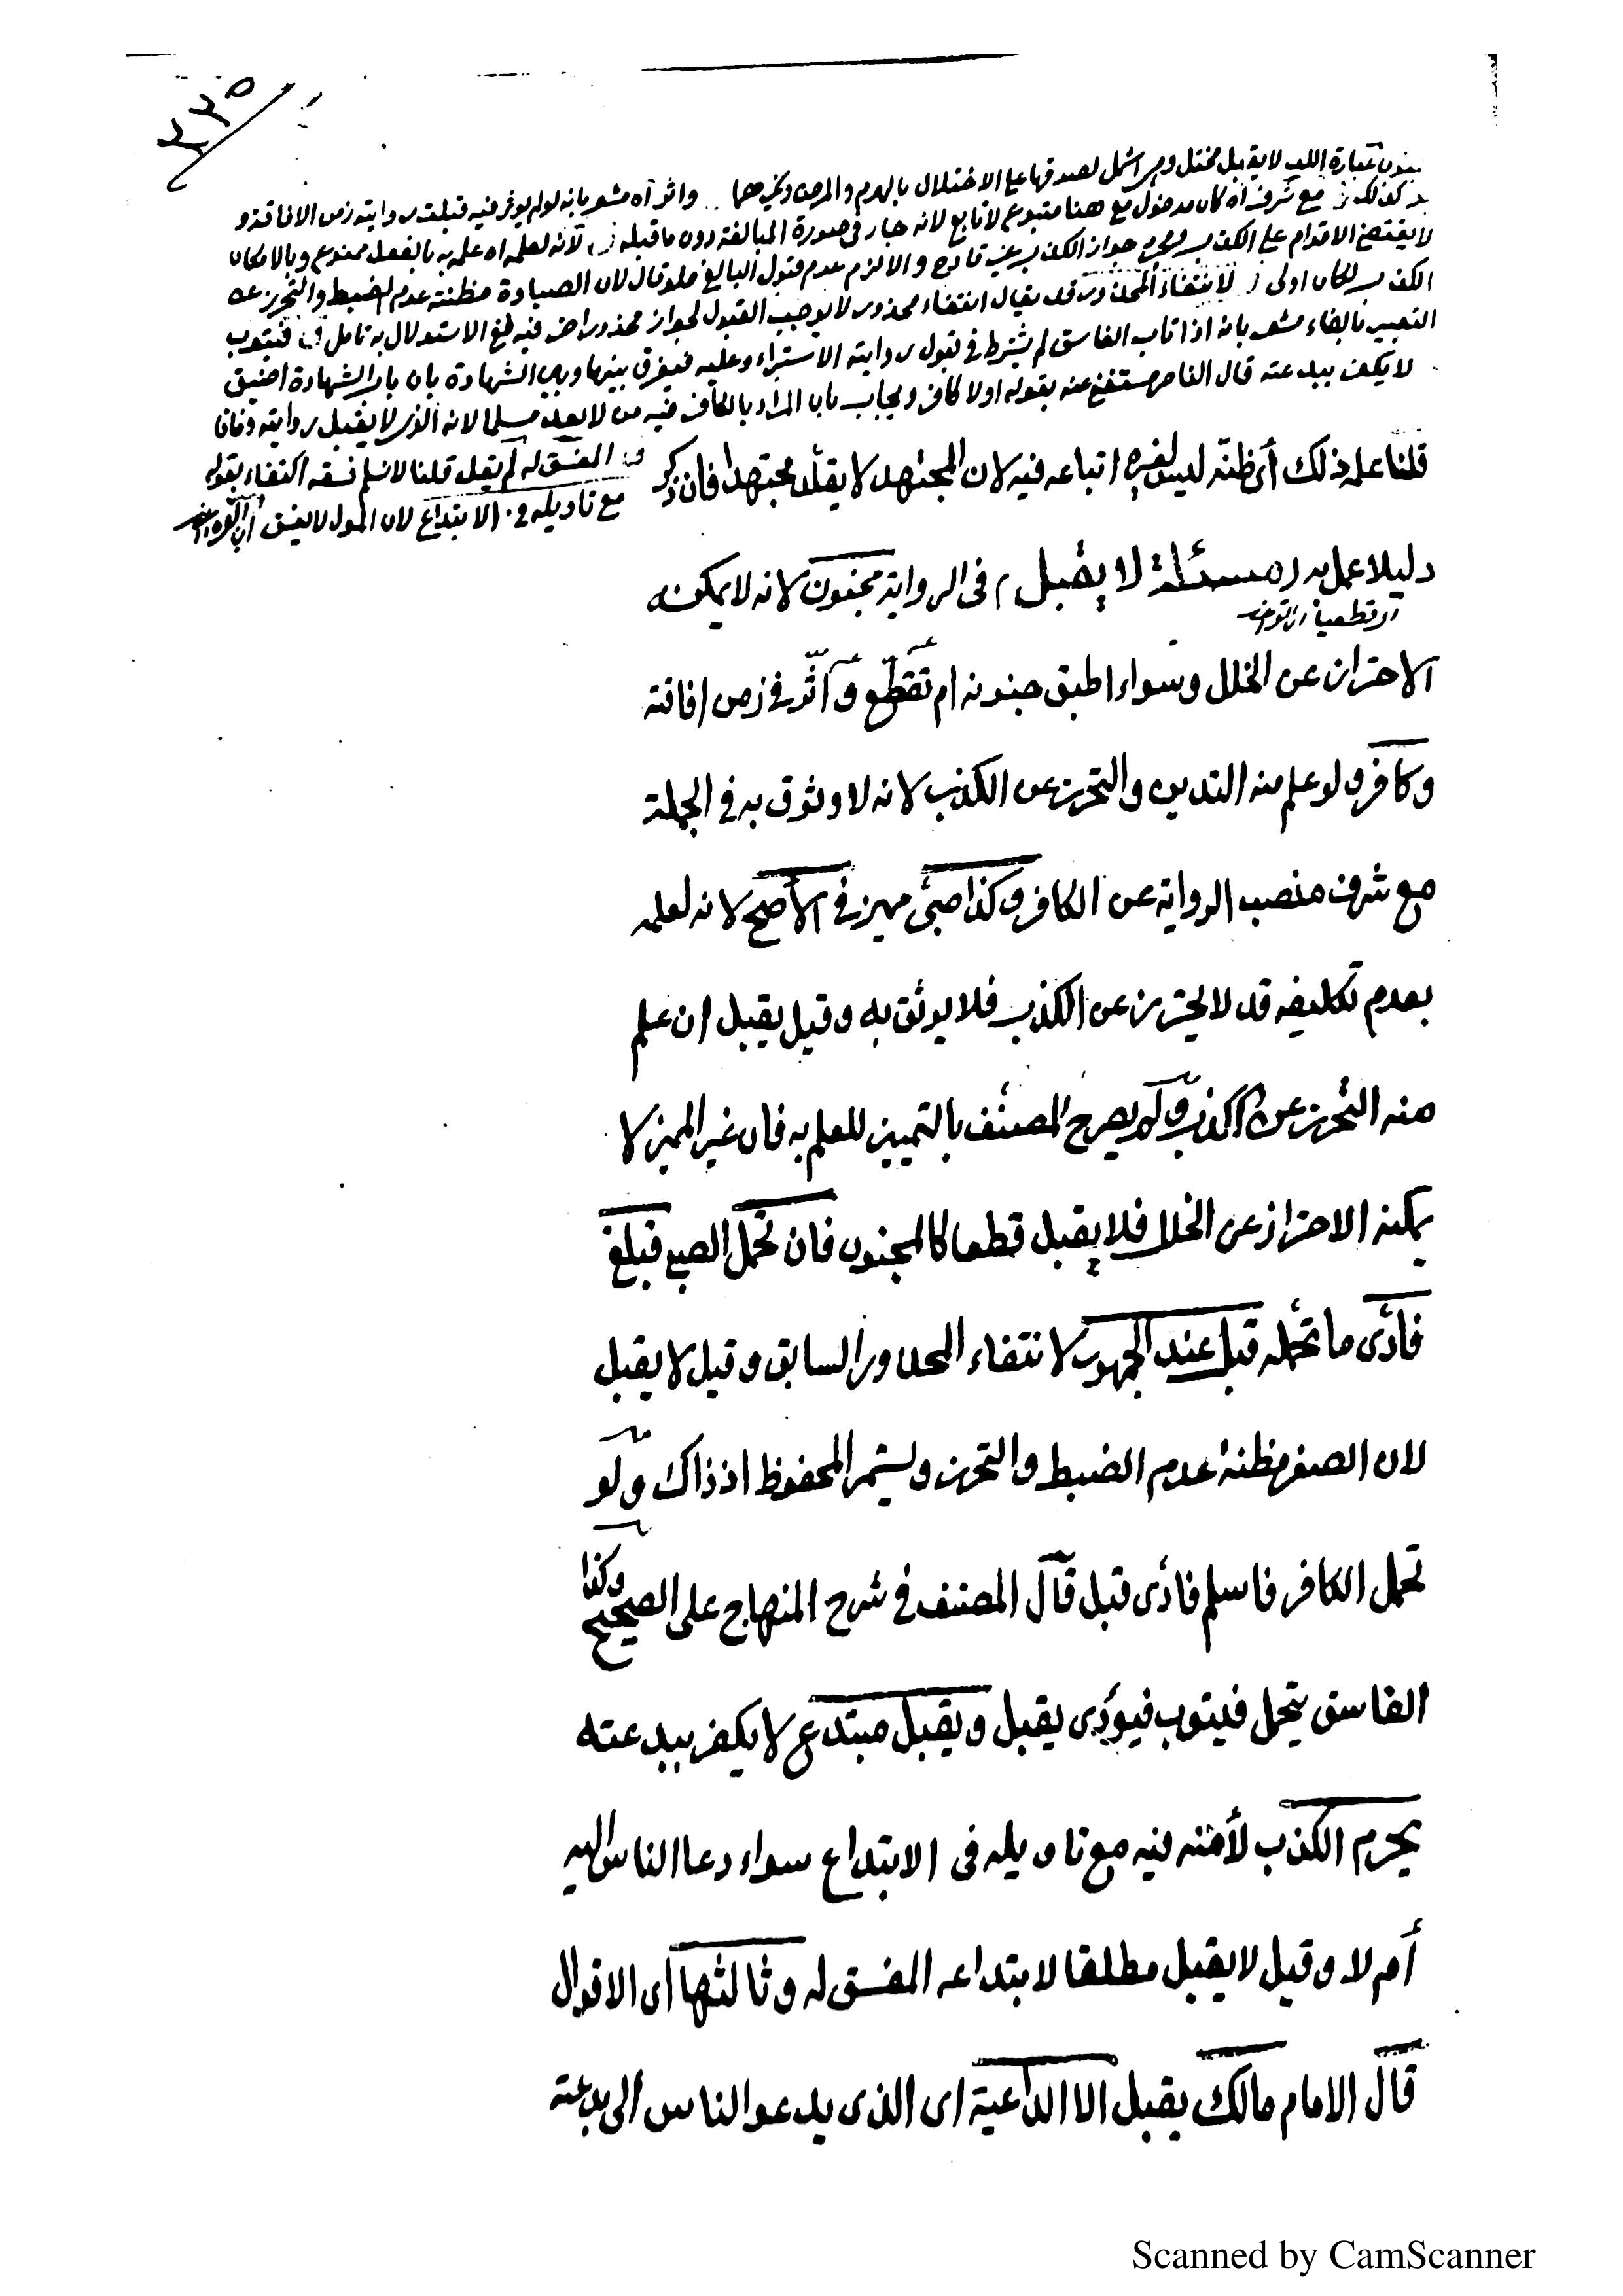 ٢٣٥
مجنون عبارة اللب لا يقبل مختل وهي اشمل لصدقها على الاختلال بالهرم والمرض ونحوهما واثر آه مشعر بانه لو لم يؤثر فيه قبلت روايته زمن الافاقة
مع شرف آه كان مدخول مع هنا متبوع لا تابع لانه جار في صورة المبالغة دون ما قبله لانه لعلمه اه علمه به بالفعل ممنوع وبالامكان
لا يقتضي الاقدام على الكذب جواز الكذب غير قادح والا لزم عدم قبول البالغ فلو قال لان الصبا مظنة عدم الضبط والتحرز عن
الكذب لكان اولى لانتفاء المحذور قد يقال انتفاء محذور لا يوجب القبول لجواز محذور اخر فيه الاستدلال به تامل فيتوب
التعبير بالفاء مشعر بانه اذا تاب الفاسق لم يشترط في قبول روايته الاستبراء وعليه فيفرق بينها وبين الشهادة بان باب الشهادة اضيق
لا يكفر ببدعته قال الناصر مستغنى عنه بقوله اولا كافر ويجاب بان المراد بالكافر فيه من لا يعد مسلما لانه الذي لا يقبل روايته وفاقا
المفسق له لم يقل قلنا لا نسلم فسقه اكتفاء بقوله
مع تاويله في الابتداع لان المؤول لا يفسق
قلنا علمه ذلك أي ظنه ليس لغيره اتباعه فيه لان المجتهد لا يقلد مجتهدا فان ذكر
دليلا عمل به مسئلة لا يقبل في الرواية مجنون لانه لا يمكنه
الاحتراز عن الخلل وسواء اطبق جنونه ام تقطع و أثر في زمن افاقته
وكافر ولو علم منه التدين والتحرز عن الكذب لانه لا وثوق به في الجملة
مع شرف منصب الرواية عن الكافر وكذا صبي مميز في الأصح لانه لعلمه
بعدم تكليفه قد لا يحترز عن الكذب فلا يوثق به وقيل يقبل ان علم
منه التحرز عن الكذب ولم يصرح المصنف بالتمييز للعلم به فان غير المميز لا
يمكنه الاحتراز عن الخلل فلا يقبل قطعا كالمجنون فان تحمل الصبي فبلغ
فأدى ما تحمله قبل عند الجمهور لانتفاء المحذور السابق وقيل لا يقبل
لان الصغر مظنة عدم الضبط والتحرز ويستمر المحفوظ اذ ذاك ولو
تحمل الكافر فاسلم فأدى قبل قال المصنف في شرح المنهاج على الصحيح وكذا
الفاسق يتحمل فيتوب فيؤدي يقبل ويقبل مبتدع لا يكفر ببدعته
يحرم الكذب لأمنه فيه مع تاويله في الابتداع سواء دعا الناس اليه
أم لا وقيل لا يقبل مطلقا لابتداعه المفسق له وثالثها اى الاقوال
قال الامام مالك يقبل الا الداعية اى الذى يدعو الناس الى بدعته
Scanned by CamScanner